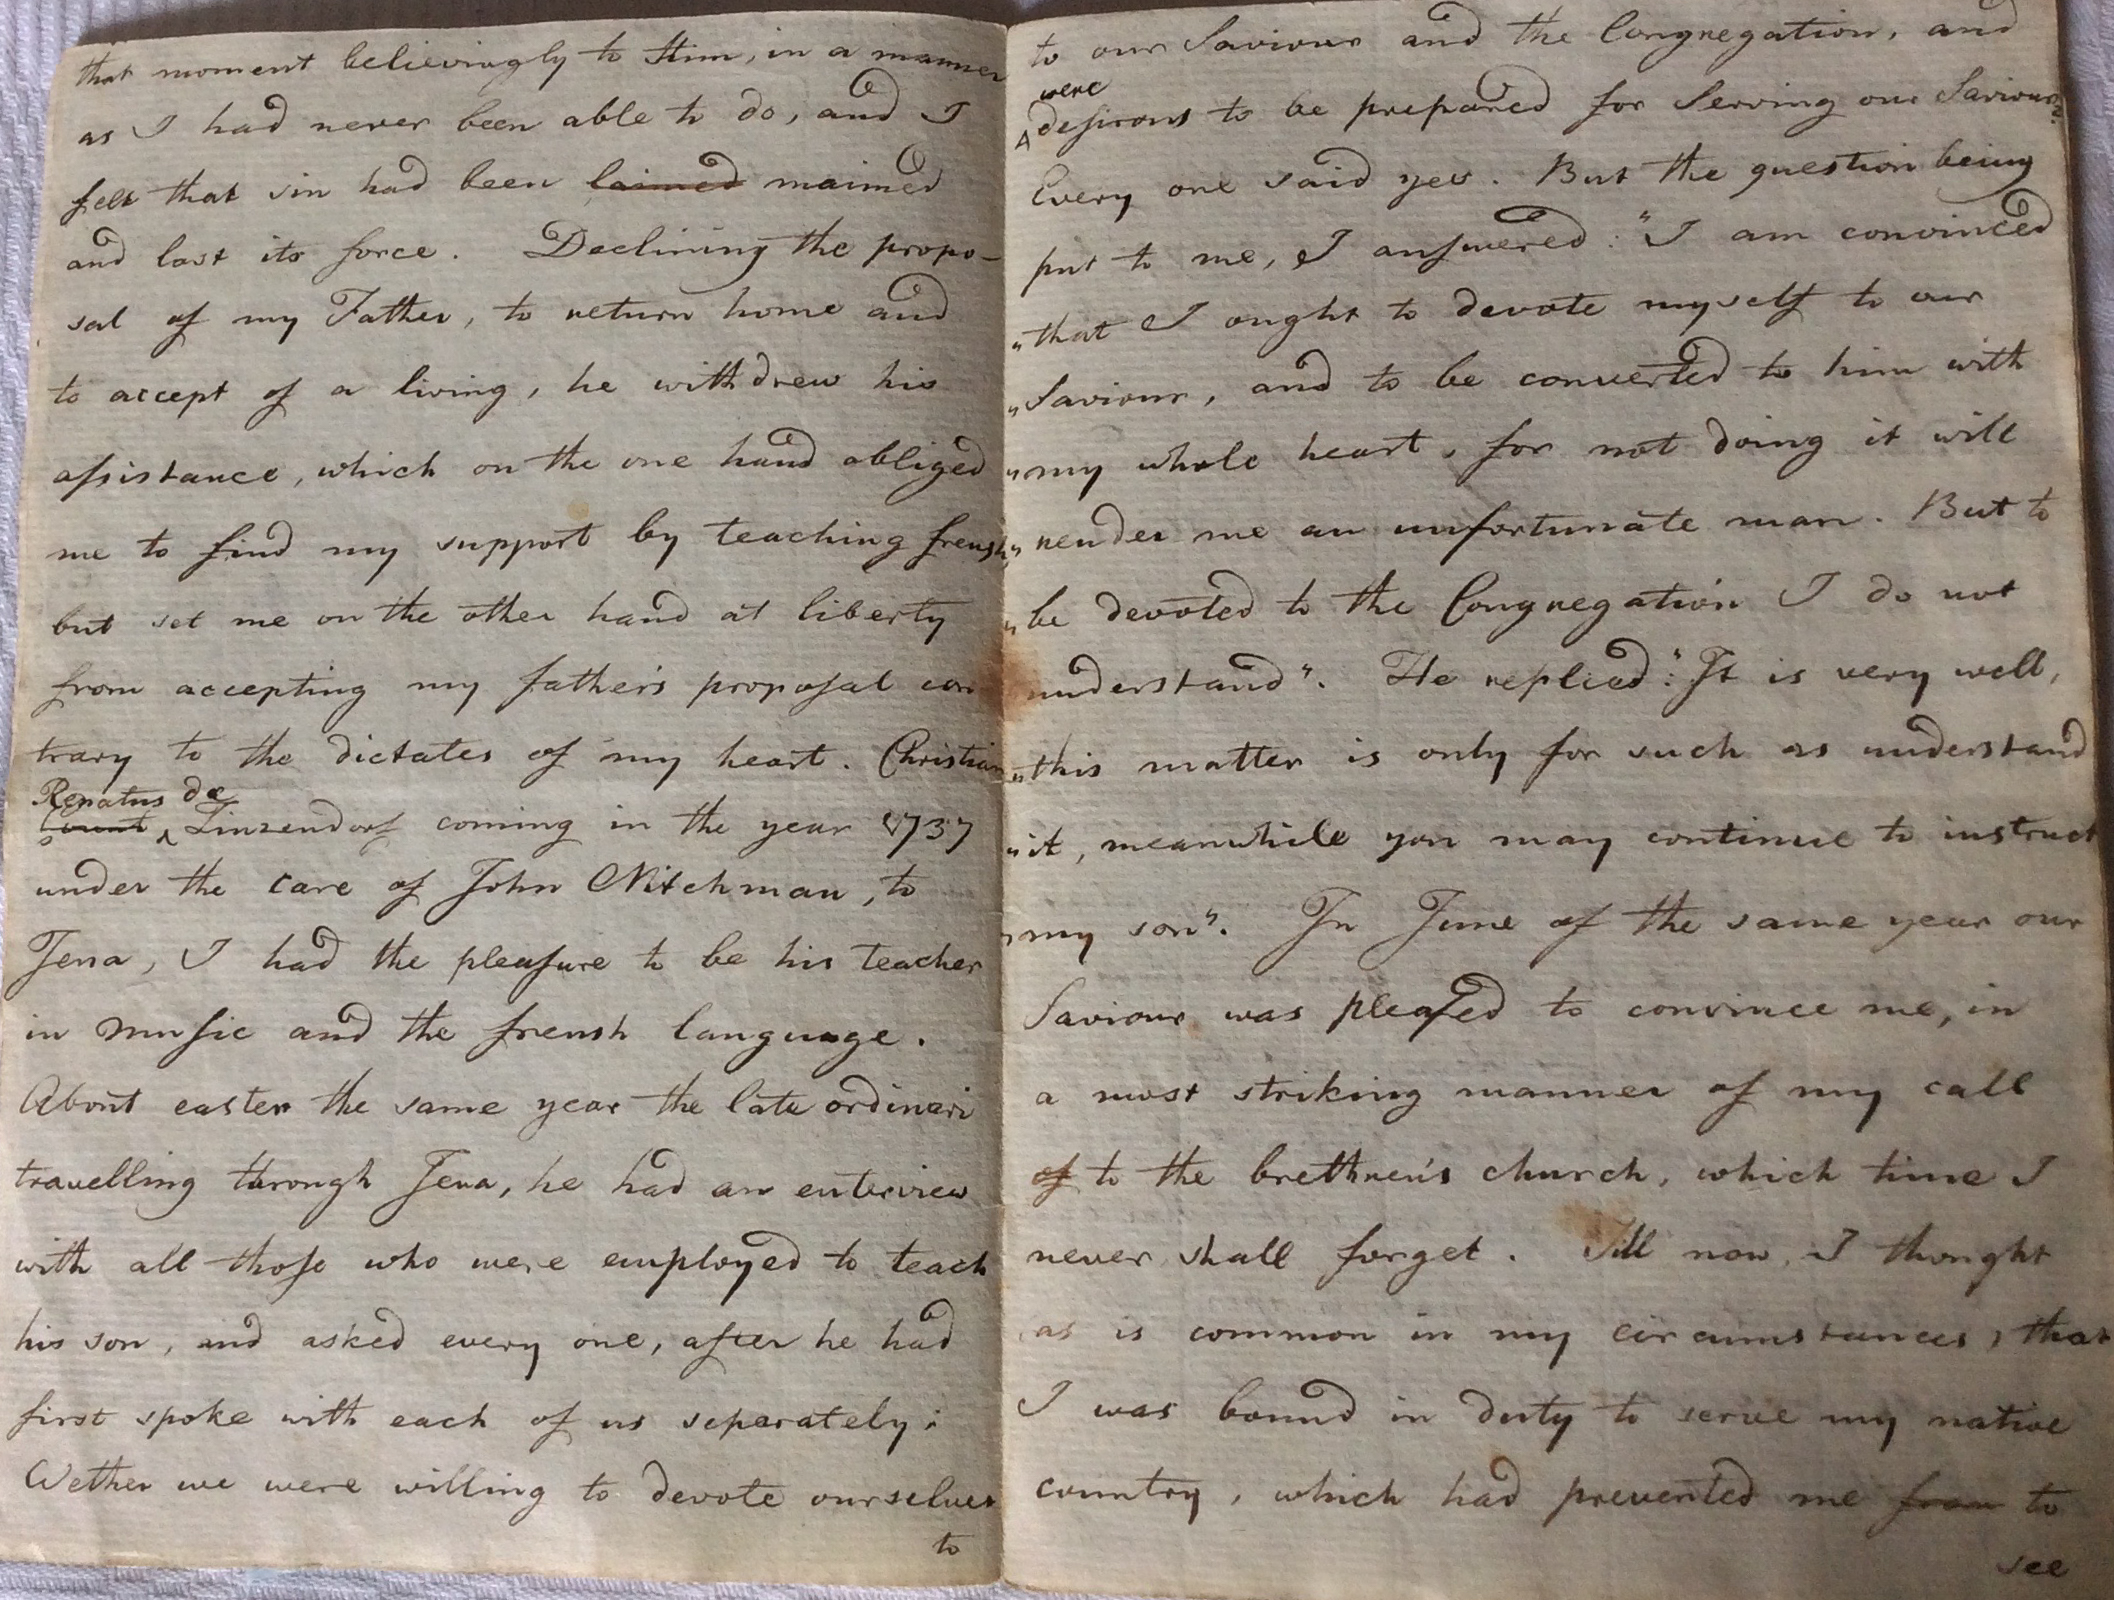 that moment believingly to Him, in a manner
as I had never been able to do, and I
felt that sin had been laimed maimed
and lost its force. Declining the propo-
sal of my Father, to return home and
to accept of a living, he withdrew his
assistance, which on the one hand obliged
me to find my support by teaching frensh,
but set me on the other hand at liberty
from accepting my father's proposal con
trary to the dictates of my heart. Christian
Renatus de
Count ^ Zinzendorf coming in the year 1737
under the care of John Nitchman, to
Jena, I had the pleasure to be his teacher
in Music and the frensh language.
About easter the same year the late ordinari
travelling through Jena, he had an enterview
with all those who were employed to teach
his son, and asked every one, after he had
first spoke with each of us separately:
Wether we were willing to devote ourselves
to
to our Saviour and the Congregation, and
were
^ desirous to be prepared for serving our Saviour?
Every one said yes. But the question being
put to me, I answered: "I am convinced
"that I ought to devote myself to our
"Saviour, and to be converted to him with
"my whole heart, for not doing it will
"render me an unfortunate man. But to
"be devoted to the Congregation I do not
understand". He replied: "It is very well,
"this matter is only for such as understand
"it, meanwhile you may continue to instruct
"my son". In June of the same year our
Saviour was pleased to convince me, in
a most striking manner of my call
of to the brethren's church, which time I
never shall forget. Till now I thought
as is common in my circumstances, that
I was bound in duty to serve my native
country, which had prevented me from to
see